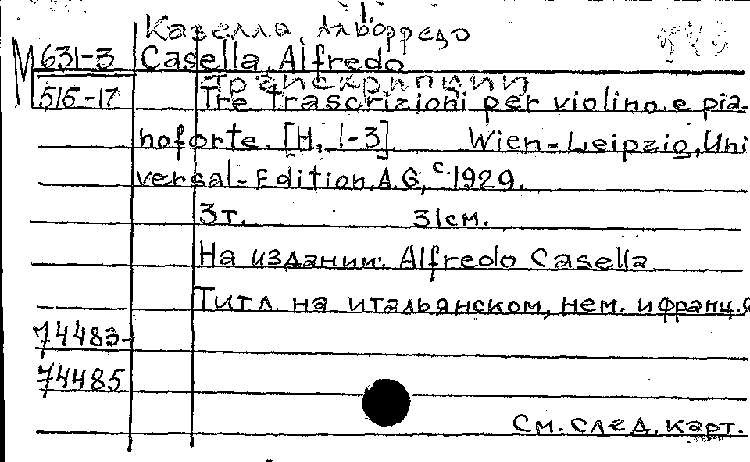 Казелла, Альфредо
М 631-3 Casella, Alfredo
Транскрипции
515-17 Tre trascrizioni per violino e pia-
noforte. [H, 1-3] Wien-Leipzig, Uni
versal-Edition, A.G., c 1929.
3т. 31см.
На издании: Alfredo Casella
Титл. на итальянском, нем. и франц. я
74483-
74485
См. след. карт.